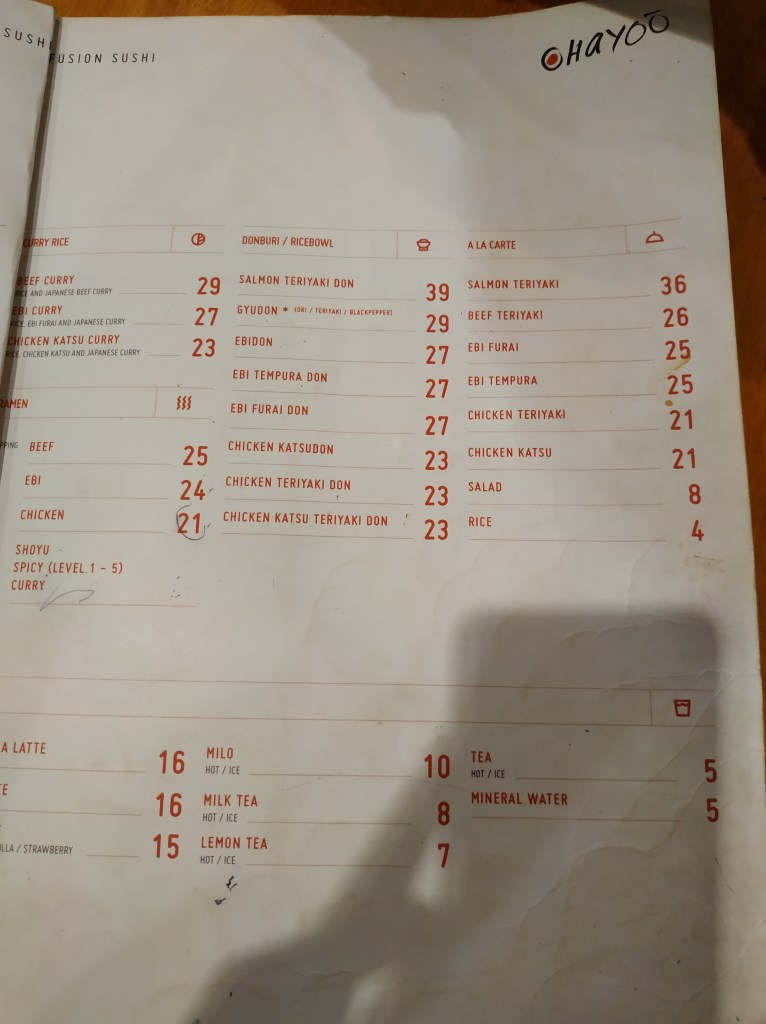 SUSHI
FUSION SUSHI
OHAYOO
CURRY RICE
BEEF CURRY 29
RICE AND JAPANESE BEEF CURRY
EBI CURRY 27
RICE, EBI FURAI AND JAPANESE CURRY
CHICKEN KATSU CURRY 23
RICE, CHICKEN KATSU AND JAPANESE CURRY
RAMEN
BEEF 25
EBI 24
CHICKEN 21
SHOYU
SPICY (LEVEL 1 - 5)
CURRY
DONBURI / RICEBOWL
SALMON TERIYAKI DON 39
GYUDON * (ORI / TERIYAKI / BLACKPEPPER) 29
EBIDON 27
EBI TEMPURA DON 27
EBI FURAI DON 27
CHICKEN KATSUDON 23
CHICKEN TERIYAKI DON 23
CHICKEN KATSU TERIYAKI DON 23
A LA CARTE
SALMON TERIYAKI 36
BEEF TERIYAKI 26
EBI FURAI 25
EBI TEMPURA 25
CHICKEN TERIYAKI 21
CHICKEN KATSU 21
SALAD 8
RICE 4
LATTE 16
16
15
/ STRAWBERRY
MILO 10
HOT / ICE
MILK TEA 8
HOT / ICE
LEMON TEA 7
HOT / ICE
TEA 5
HOT / ICE
MINERAL WATER 5